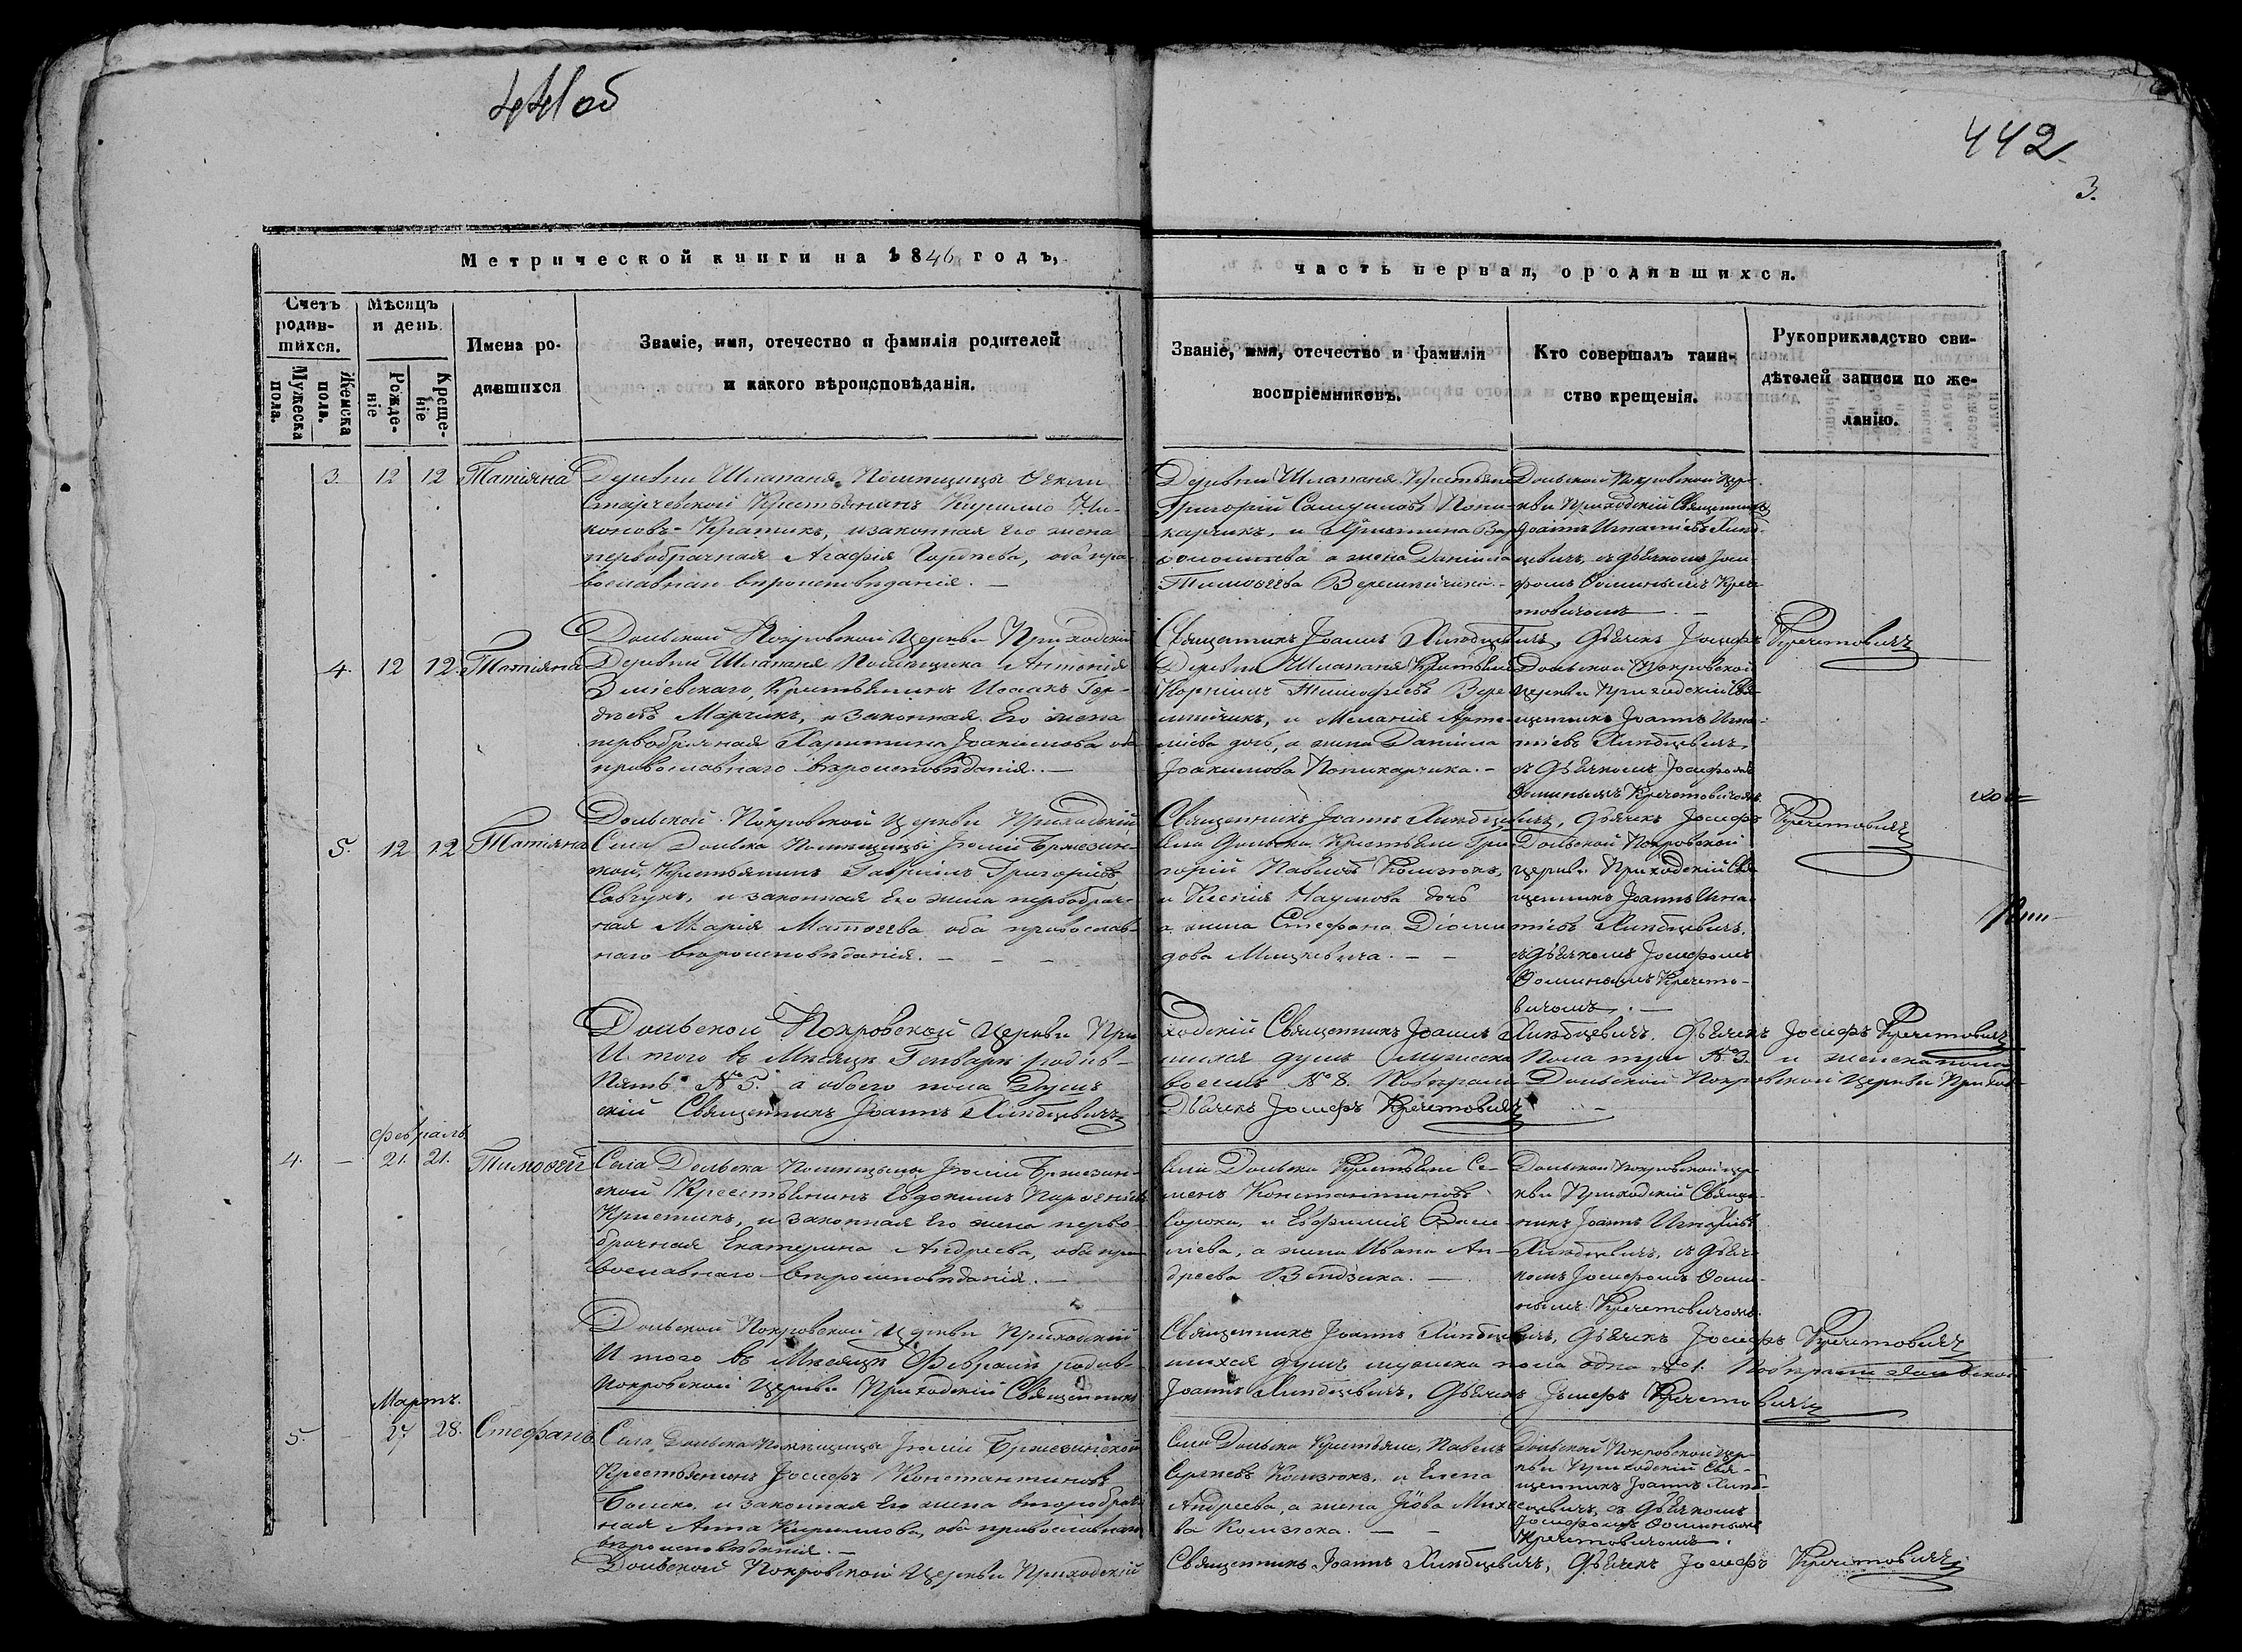 441 об
442
3.
Метрической книги на 1846 годъ,
часть первая, о родившихся.
Счетъ родив-шихся.
Мужеска пола.
Женска пола.
Мѣсяцъ и день
Рожде-ніе
Креще-ніе
Имена ро-
дившихся
Званіе, имя, отечество и фамилія родителей
и какого вѣроисповѣданія.
Званіе, имя, отечество и фамилія
воспріемниковъ.
Кто совершалъ таин-
ство крещенія.
Рукоприкладство сви-
дѣтелей записи по же-
ланію.
3. 12 12 Татіяна
Деревни Шлапаня Помѣщицы
Крестьянинъ Кирилло Ни-
коновъ Кратикъ, и законная Его жена
первобрачная Агафія, оба пра-
вославнаго вѣроисповѣданія. —
Деревни Шлапаня Крестьяне
Григорій Самуиловъ Поли-
карчикъ, и Христина Вар-
ѳоломеева а жена Даніила
Тимоѳеева Веремейчика. —
Дольской Покровской Цер-
кви Приходскій Священникъ
Іоаннъ Игнатіевъ Хлѣб-
цевичъ, съ дьячкомъ Іоси-
фомъ Ѳоминымъ Кречe-
товичомъ —
Дольской Покровской Церкви Приходскій
Священникъ Іоаннъ Хлѣбцевичъ, Дьячекъ Іосифъ Кречетовичъ
4. 12 12 Татіяна
Деревни Шлапаня Помѣщика Антонія
Зміевскаго, Крестьянинъ Исаакъ Гор-
дѣевъ Марчикъ, и Законная Его жена
первобрачная Харитина Іоакимова оба
православнаго вѣроисповѣданія. —
Деревни Шлапаня Крестьяне
Корнилъ Тимофѣевъ Вере-
мейчикъ, и Меланія Арте-
міева дочь, а жена Даніила
Іоакимова Поликарчика. —
Дольской Покровской
Церкви Приходскій Свя-
щенникъ Іоаннъ Игна-
тіевъ Хлѣбцевичъ,
съ Дьячкомъ Іосифомъ
Ѳоминымъ Кречетовичомъ.
Дольской Покровской Церкви Приходскій
Священникъ Іоаннъ Хлѣбцевичъ, Дьячекъ Іосифъ Кречетовичъ
5. 12 12 Татіяна
Села Дольска Помѣщицы Іюліи Бржезин-
ской, Крестьянинъ Гавріилъ Григоріевъ
Савчукъ, и законная Его жена первобрач-
ная Марія Матѳеева оба православ-
наго вѣроисповѣданія. — — —
Села Дольска Крестьяне Гри-
горій Павловъ Колизюкъ,
и Ксенія Наумова дочь
а жина Стефана Діоми-
дова Мицкевича. — —
Дольской Покровской
церкви Приходскій Свя-
щенникъ Іоаннъ Игна-
тіевъ Хлѣбцевичъ.
съ Дьячкомъ Іосифомъ
Ѳоминымъ Кречето-
вичомъ. —
Дольской Покровской Церкви При-
ходскій Священникъ Іоаннъ Хлѣбцевичъ. Дьячекъ Іосифъ Кречетовичъ
И того въ Мѣсяцѣ Генварѣ родив-
шихся душъ мужеска Пола три №3. и женска пола
Пять №5. а обоего пола Душъ
восемь №8. Повѣряли Дольской Покровской Церкви Приход-
скій Священникъ Іоаннъ Хлѣбцевичъ
Дьячекъ Іосифъ Кречетовичъ
Февраль
4. — 21. 21. Тимоѳей
Села Дольска Помѣщицы Іюліи Бржезин-
ской Крестьянинъ Евдокимъ Парѳеніевъ
Кристикъ, и законная Его жена перво-
брачная Екатерина Андреева, оба пра-
вославнаго вѣроисповѣданія. —
Села Дольска Крестьяне Се-
менъ Константиновъ
Сорока, и Евфимія Васи-
ліева, а жина Ивана Ан-
дреева Вендзика. —
Дольской Покровской цер-
кви Приходскій Священ-
никъ Іоаннъ Игнатіевъ
Хлѣбцевичъ, съ Дьяч-
комъ Іосифомъ Ѳоми-
нымъ Кречетовичомъ.
Дольской Покровской Церкви Приходскій
Священникъ Іоаннъ Хлѣбцевичъ, Дьячекъ Іосифъ Кречетовичъ
И того въ Мѣсяцѣ Февралѣ родив-
шихся душъ мужеска пола одна №1. Повѣряли Дольской
Покровской Церкви Приходскій Священникъ
Іоаннъ Хлѣбцевичъ, Дьячекъ Іосифъ Кречетовичъ
Мартъ.
5. — 27 28. Стефанъ
Села Дольска Помѣщицы Іюліи Бржезинской
Крестьянинъ Іосифъ Константиновъ
и законная Его жена второбрач-
ная Анна Кириллова, оба православнаго
вѣроисповѣданія. —
Села Дольска Крестьяне, Павелъ
Сергѣевъ Колизюкъ, и Елена
Андреева, а жена Іова Михее-
ва Колизюка. — —
Дольской Покровской Цер-
кви Приходскій Свя-
щенникъ Іоаннъ Хлѣб-
цевичъ, съ Дьячкомъ
Іосифомъ Ѳоминымъ
Кречетовичомъ.
Дольской Покровской Церкви Приходскій
Священникъ Іоаннъ Хлѣбцевичъ, Дьячекъ Іосифъ Кречетовичъ